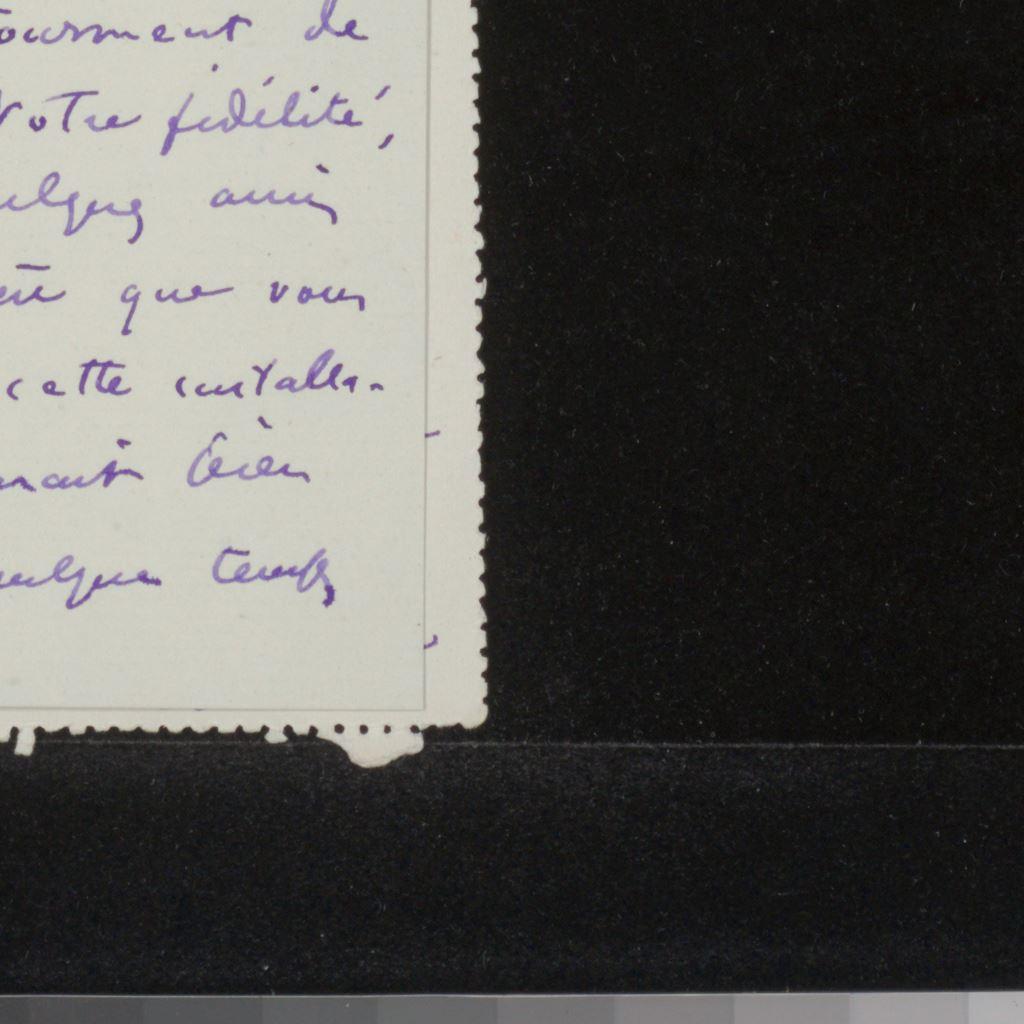 tourment de
Votre fidélité,
uelques amis
que vous
cette installa-
nait bien
uelque temps